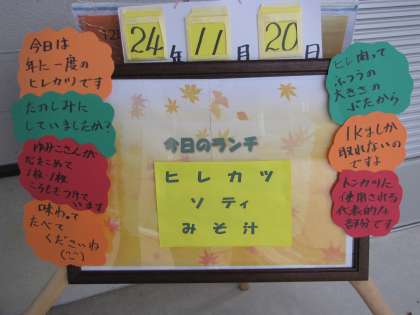 24年11月20日
今日は
年に一度の
ヒレカツです
たのしみに
していましたか?
ゆみこさんが
心をこめて
1枚1枚
ころもをつけて
います
味わって
たべて
くださいね
今日のランチ
ヒレカツ
ソティ
みそ汁
ヒレ肉って
ふつうの
大きさの
ぶたから
1kgしか
取れないの
ですよ
トンカツに
使用される
代表的な
部分です